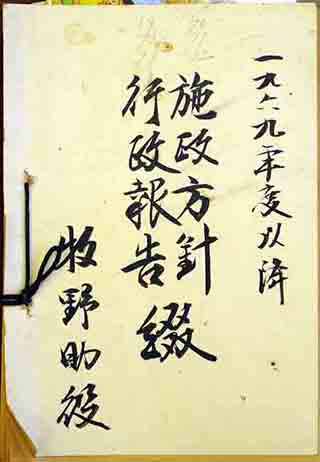 一九六九年度以降
施政方針
行政報告 綴
牧野助役